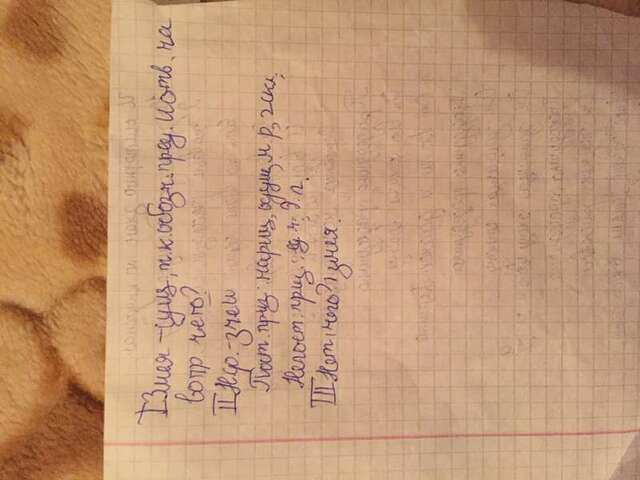 I Змея – сущ, т.к. обозн. пред. и отв. на
вопр. чего?
II Н.ф. – змей
Пост. приз: нариц, одуш, м р, 2 скл,
Непост. приз. ед ч, Р. п.
III Нет (чего?) змея.